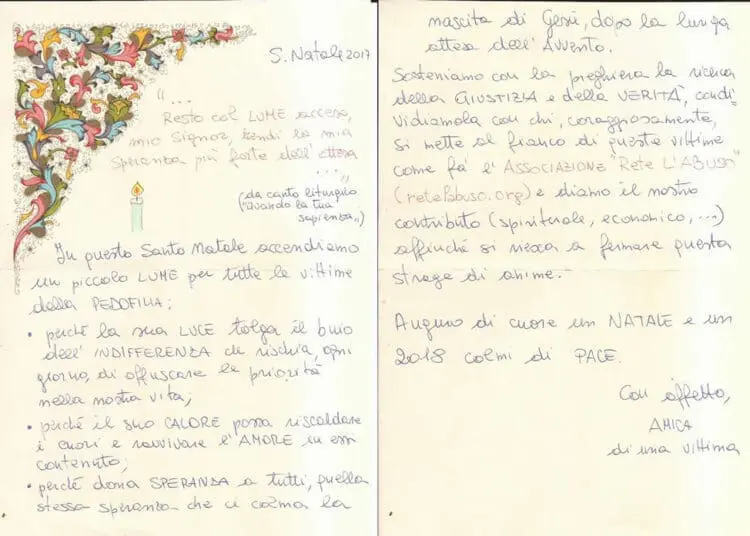 S. Natale 2017
"...
Resto col LUME acceso,
mio Signor, rendi la mia
speranza più forte dell'attesa
..."
(da canto liturgico
"Quando la tua
sapienza")
In questo Santo Natale accendiamo
un piccolo LUME per tutte le vittime
della PEDOFILIA:
• perché la sua LUCE tolga il buio
dell'INDIFFERENZA che rischia, ogni
giorno, di offuscare le priorità
nella nostra vita;
• perché il suo CALORE possa riscaldare
i cuori e ravvivare l'AMORE in essi
contenuto;
• perché dona SPERANZA a tutti, quella
stessa speranza che ci colma la
nascita di Gesù, dopo la lunga
attesa dell'AVVENTO.
Sosteniamo con la preghiera la ricerca
della GIUSTIZIA e della VERITÀ, condi
vidiamola con chi, coraggiosamente,
si mette al fianco di queste vittime
come fà l'ASSOCIAZIONE "Rete L'ABUSO"
(retelabuso.org) e diamo il nostro
contributo (spirituale, economico, ...)
affinché si riesca a fermare questa
strage di anime.
Auguro di cuore un NATALE e un
2018 colmi di PACE.
Con affetto,
AMICA
di una vittima